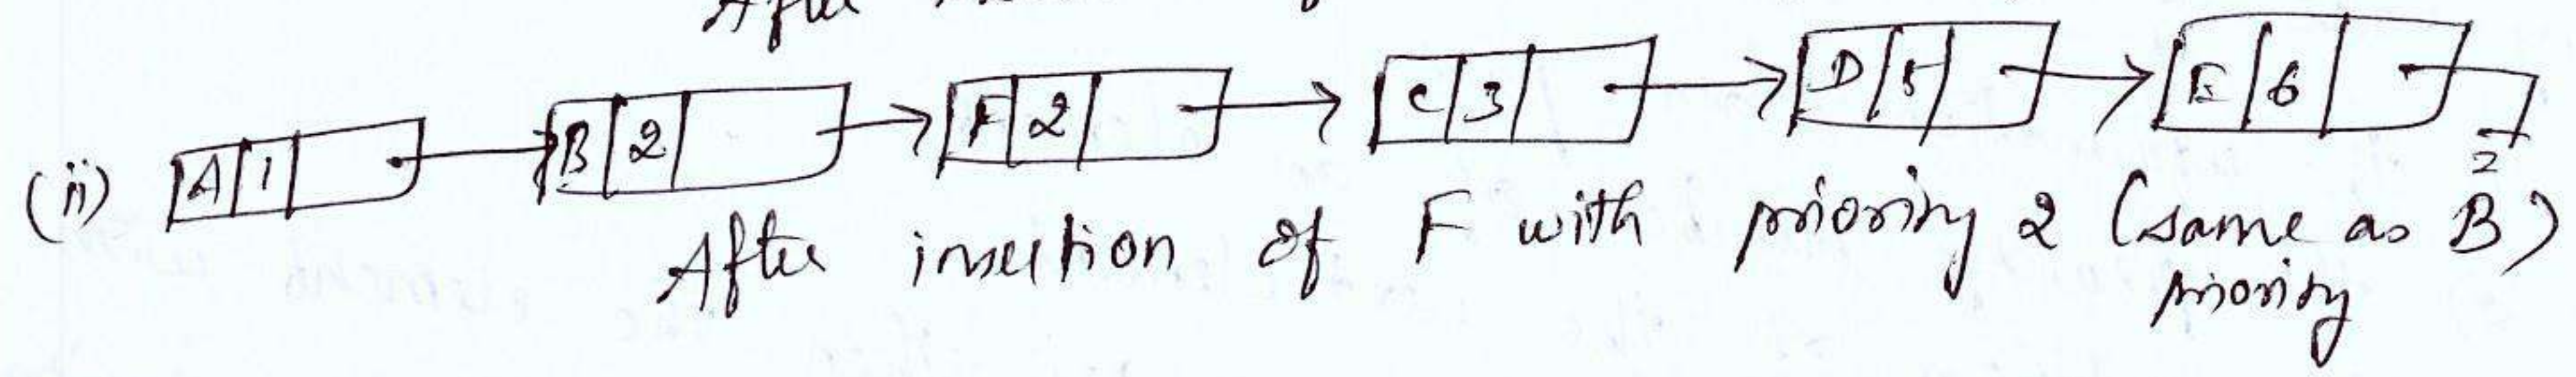 After
(ii) A 1 B 2 F 2 C 3 D 5 E 6
After insertion of F with priority 2 (same as B)
priority